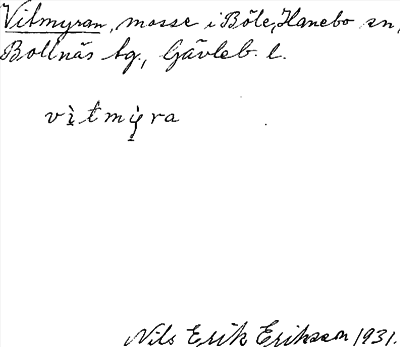 Vitmyran, mosse i Böle, Hanebo sn,
Bollnäs tg., Gävleb. l.
vı̀tmỳra
Nils Erik Eriksson 1931.